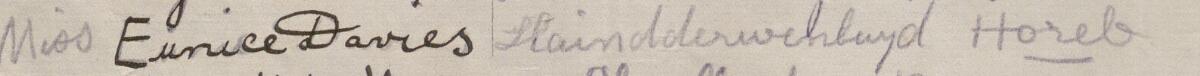 Miss Eunice Davies Llaindderwenlwyd Horeb